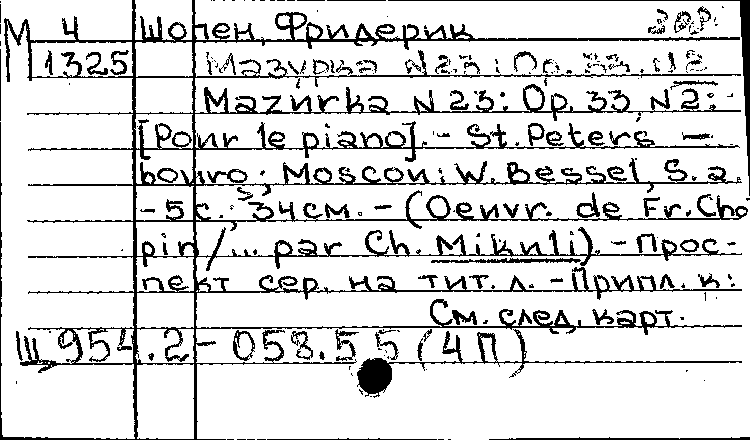 М 4 Шопен, Фридерик
1325 Мазурка N23: Op. 33, N2
Mazurka N23: Op. 33, N2:-
[Pour le piano].- St. Peters-
bourg; Moscou: W. Bessel, S. a.
-5 с.; 34 см. - (Oeuvr. de Fr. Cho
pin/... par Ch. Mikuli). - Прос-
пект сер. на тит. л. - Припл. к:
См. след. карт.
Ш 954.2-058.55 (4П)